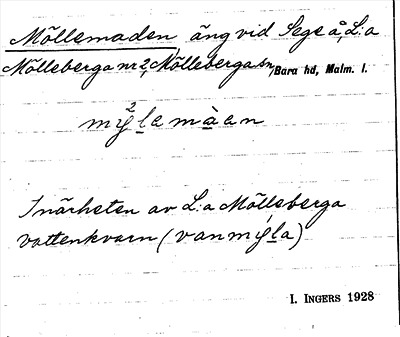 Möllemaden äng vid Sege å, L:a
Mölleberga nr 2, Mölleberga sn, Bara hd, Malm. l.
mȳ²lemàen
I närheten av L:a Mölleberga
vattenkvarn (vanmýla)
I. INGERS 1928